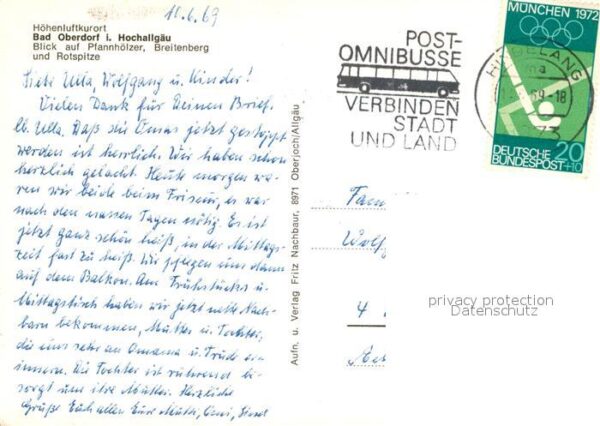 10.6.69
Höhenluftkurort
Bad Oberdorf i. Hochallgäu
Blick auf Pfannhölzer, Breitenberg
und Rotspitze
Liebe Ulla, Wolfgang u. Kinder!
Vielen Dank für Deinen Brief
lb. Ulla. Daß die Omas jetzt
werden ist herrlich. Wir haben schon
herzlich gelacht. Heute morgen wa-
ren wir beide beim Friseur, es war
nach den nassen Tagen nötig. Es ist
jetzt ganz schön heiß, in der Mittags-
zeit fast zu heiß. Wir pflegen uns dann
auf dem Balkon. Am Frühstücks u.
Mittagstisch haben wir jetzt nette Nach-
barn bekommen, Mutter u. Tochter,
die uns sehr an Omama u. Trude er-
innern. Die Tochter ist rührend be-
sorgt um ihre Mutter. Herzliche
Grüße Euch allen Eure
Aufn. u. Verlag Fritz Nachbaur, 8971 Oberjoch/Allgäu
POST-
OMNIBUSSE
VERBINDEN
STADT
UND LAND
HINDELANG
69-18
MÜNCHEN 1972
DEUTSCHE
BUNDESPOST
20
+10
Fam
Wolf
4
privacy protection
Datenschutz